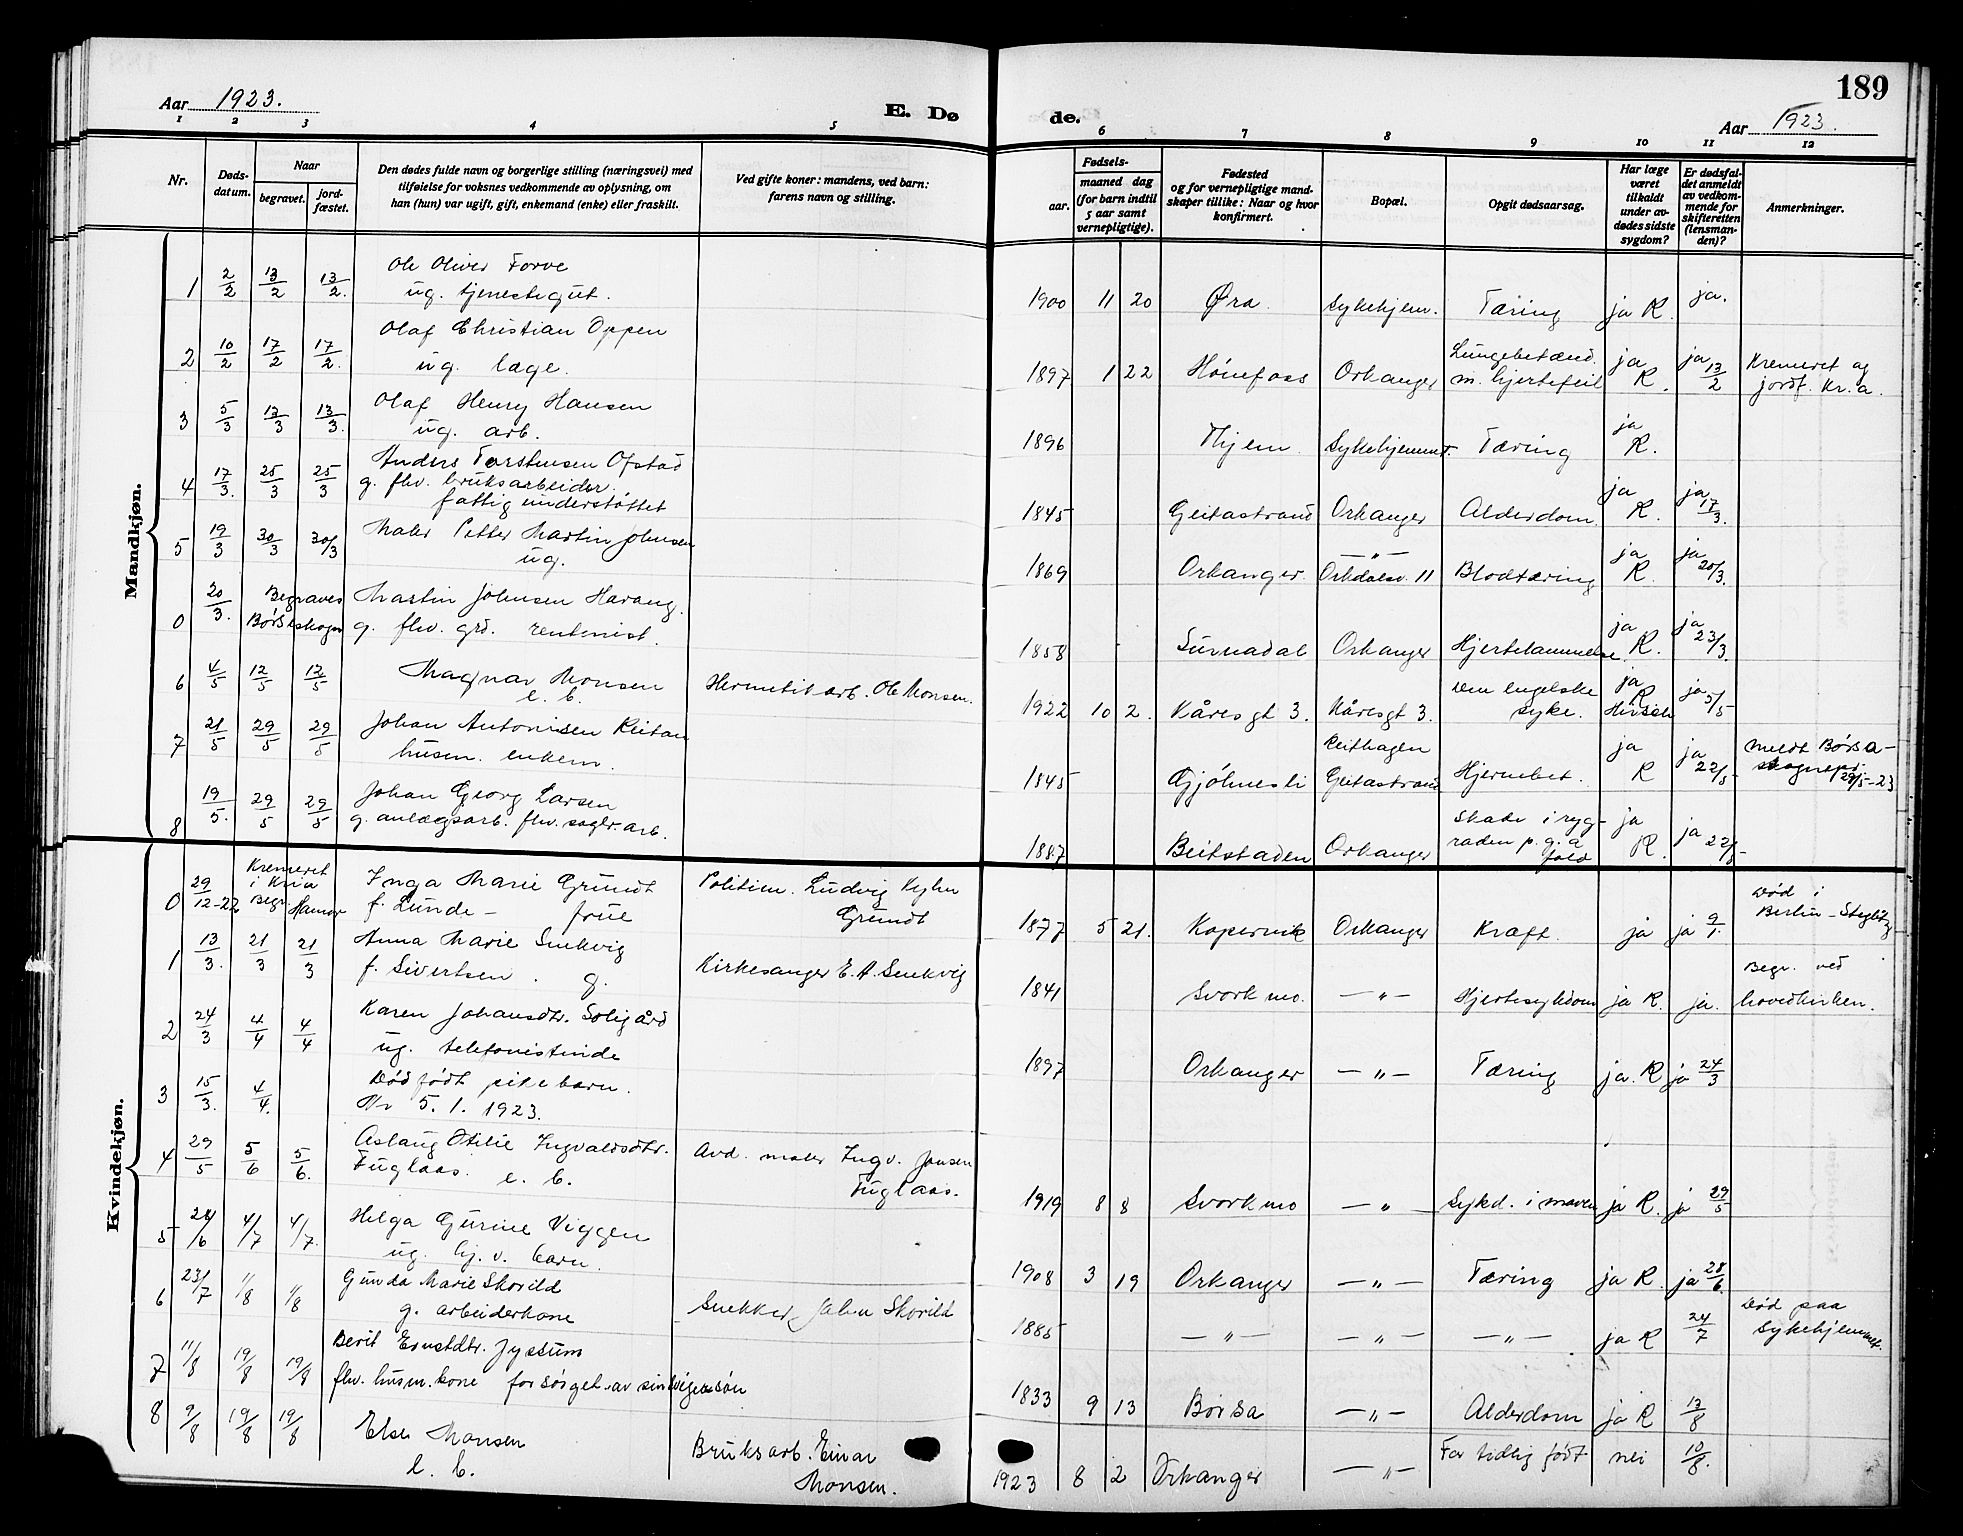 Aar 1923. E. Dø
1 2 3 4 5
Nr. Døds-datum. Naar begravet. jord-fæstet.
Den dødes fulde navn og borgerlige stilling (næringsvei) med
tilføielse for voksnes vedkommende av oplysning, om
han (hun) var ugift, gift, enkemand (enke) eller fraskilt.
Ved gifte koner: mandens, ved barn:
farens navn og stilling.
Mandkjøn.
1 2/2 13/2 13/2. Ole Oliver Forve
ug. tjenestegut.
2 10/2 17/2 17/2. Olaf Christian Oppen
ug. læge.
3 5/3 13/3 13/3. Olaf Henry Hansen
ug. arb.
4 17/3. 25/3 25/3 Anders Torstensen Ofstad
g. fhv. bruksarbeider.
fattigunderstøttet
5 19/3 30/3 30/3 Maler Petter Martin Johnsen
ug.
0 20/3. Begraves Børseskogn Martin Johnsen Harang.
g. fhv. grd. rentenist.
6 4/5 12/5 12/5 Magnar Monsen Hermetikarb. Ole Monsen.
e. b.
7 21/5 29/5 29/5 Johan Antonisen Reitan
husm. enkem.
8 19/5. 29/5 29/5 Johan Georg Larsen
g. anlægsarb. fhv. sagbr. arb.
Kvindekjøn.
0 29/12-22 Kremeret i Kr.ia Begr. Hamar Inga Marie Grundt Politim. Ludvig Kyhn
f. Lunde – frue Grundt
1 13/3. 21/3 21/3 Anna Marie Snekvig
f. Sivertsen. g. Kirkesanger E. A. Snekvig
2 24/3 4/4 4/4 Karen Johansdtr. Soligård
ug. telefonistinde
3 15/3. 4/4. Dødfødt pikebarn.
Nr 5. 1. 1923.
4 29/5 5/6 5/6. Aslaug Otilie Ingvaldsdtr. Avd. maler Ingv. Jonsen
Fuglaas. e. b. Fuglaas.
5 28/6 4/7 4/7. Helga Gurine Viggen
ug. hj. v. barn.
6 23/7 11/8 11/8 Gunda Marie Skorild
g. arbeiderkone Snekker John Skorild
7 11/8 19/8 19/8 Berit Ernstdtr. Jyssum
fhv. husm. kone forsørget av sin svigersøn
8 9/8 19/8 19/8 Else Monsen Bruksarb. Einar
e. b. Monsen.
189
de. Aar 1923.
6 7 8 9 10 11 12
Fødsels-
aar. maaned dag
(for barn indtil
5 aar samt
vernepligtige).
Fødested
og for vernepligtige mand-
skaper tillike: Naar og hvor
konfirmert.
Bopæl.
Opgit dødsaarsag.
Har læge
været
tilkaldt
under av-
dødes sidste
sygdom?
Er dødsfal-
det anmeldt
av vedkom-
mende for
skifteretten
(lensman-
den)?
Anmerkninger.
1900 11 20 Øra. Sykehjem. Tæring ja R. ja.
1897 1 22 Hønefoss Orkanger Lungebetænd. m. hjertefeil ja R. ja 13/2 Kremeret og jordf. Kr.a.
1896 Thjem Sykehjemmet. Tæring ja R.
1845 Geitastrand Orkanger Alderdom. ja R. ja 17/3.
1869 Orkanger. —„— Orkdalsv. 11 Blodtæring ja R. ja 20/3.
1858 Surnadal Orkanger Hjertelammelse ja R. ja 23/3.
1922 10 2. Kåresgt 3. Kåresgt 3. Den engelske syke. ja R Hirsch ja 5/5
1845 Gjølmesli Reithagen Geitastrand Hjernebet. ja R ja 22/5 meldt Børsa-skognepr. 29/5-23
1887 Beitstaden Orkanger Skade i ryg-raden p. g. a fald ja R. ja 22/5
1877 5 21. Kopervik Orkanger Kræft. ja ja 9/1. Død i Berlin-Steglitz
1841 Svorkmo. —„— Hjertesykdom ja R. ja. Begr. ved hovedkirken.
1897 Orkanger —„— Tæring ja. R ja 24/3
1919 8 8 Svorkmo —„ Sykd. i maven ja R. ja 29/5
1908 3 19 Orkanger —„— Tæring ja R. ja 28/6.
1885 —„— —„— —„— ja R 24/7 Død paa Sykehjemmet.
1833 9 13 Børsa —„— Alderdom ja R 13/8
1923 8 2 Orkanger —„— For tidlig født nei 10/8.